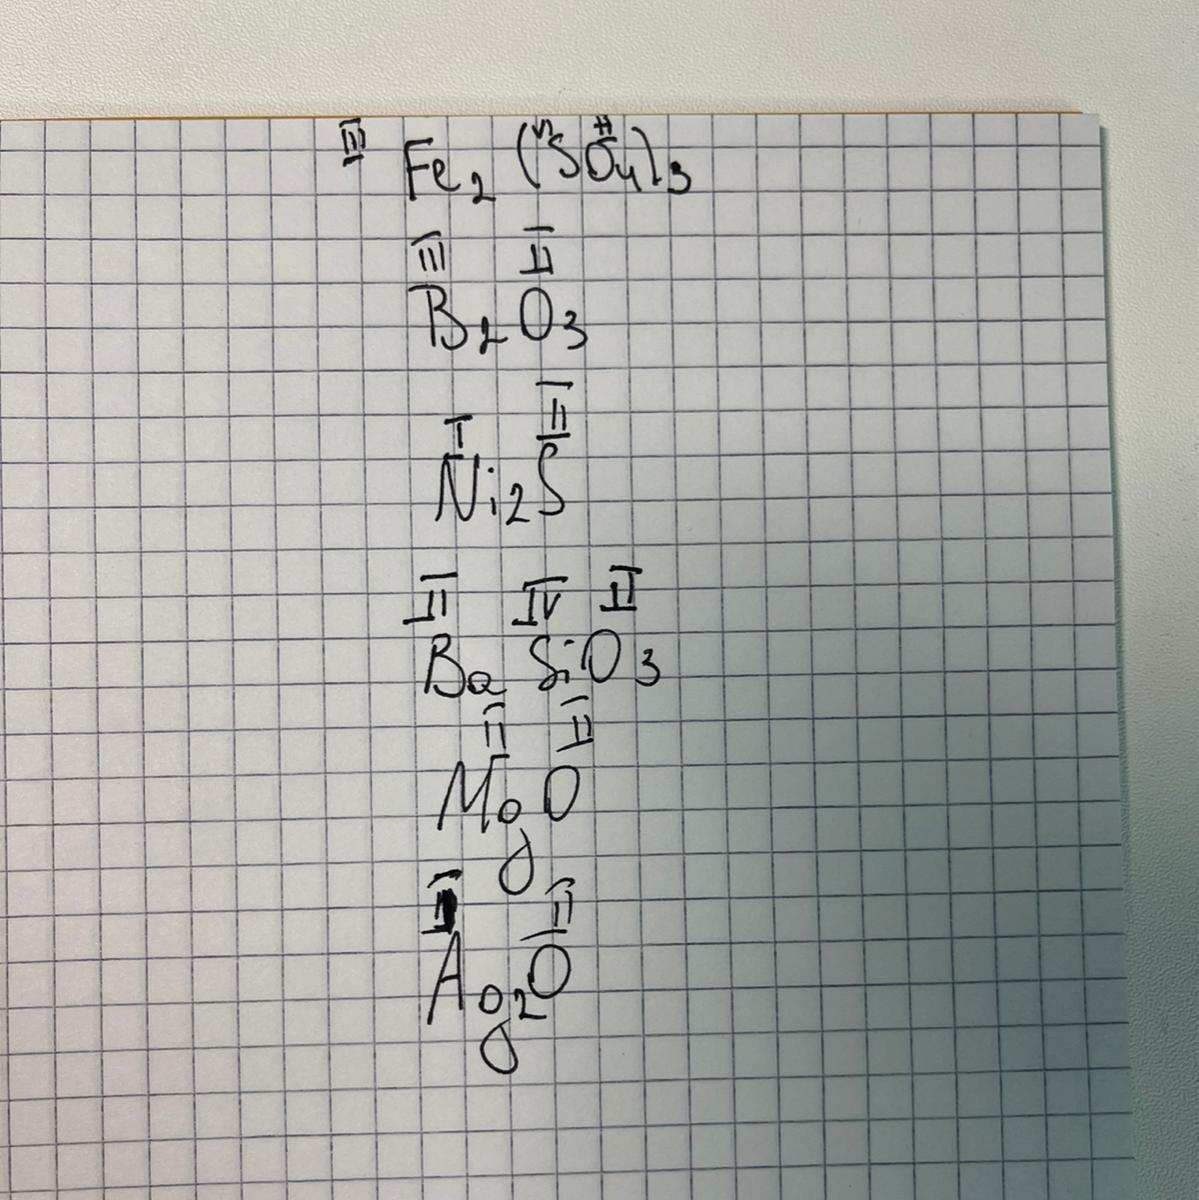 III Fe₂ (SO₄)₃
VI II
III II
B₂O₃
I II
Ni₂S
II IV II
BaSiO₃
II II
MgO
I II
Ag₂O